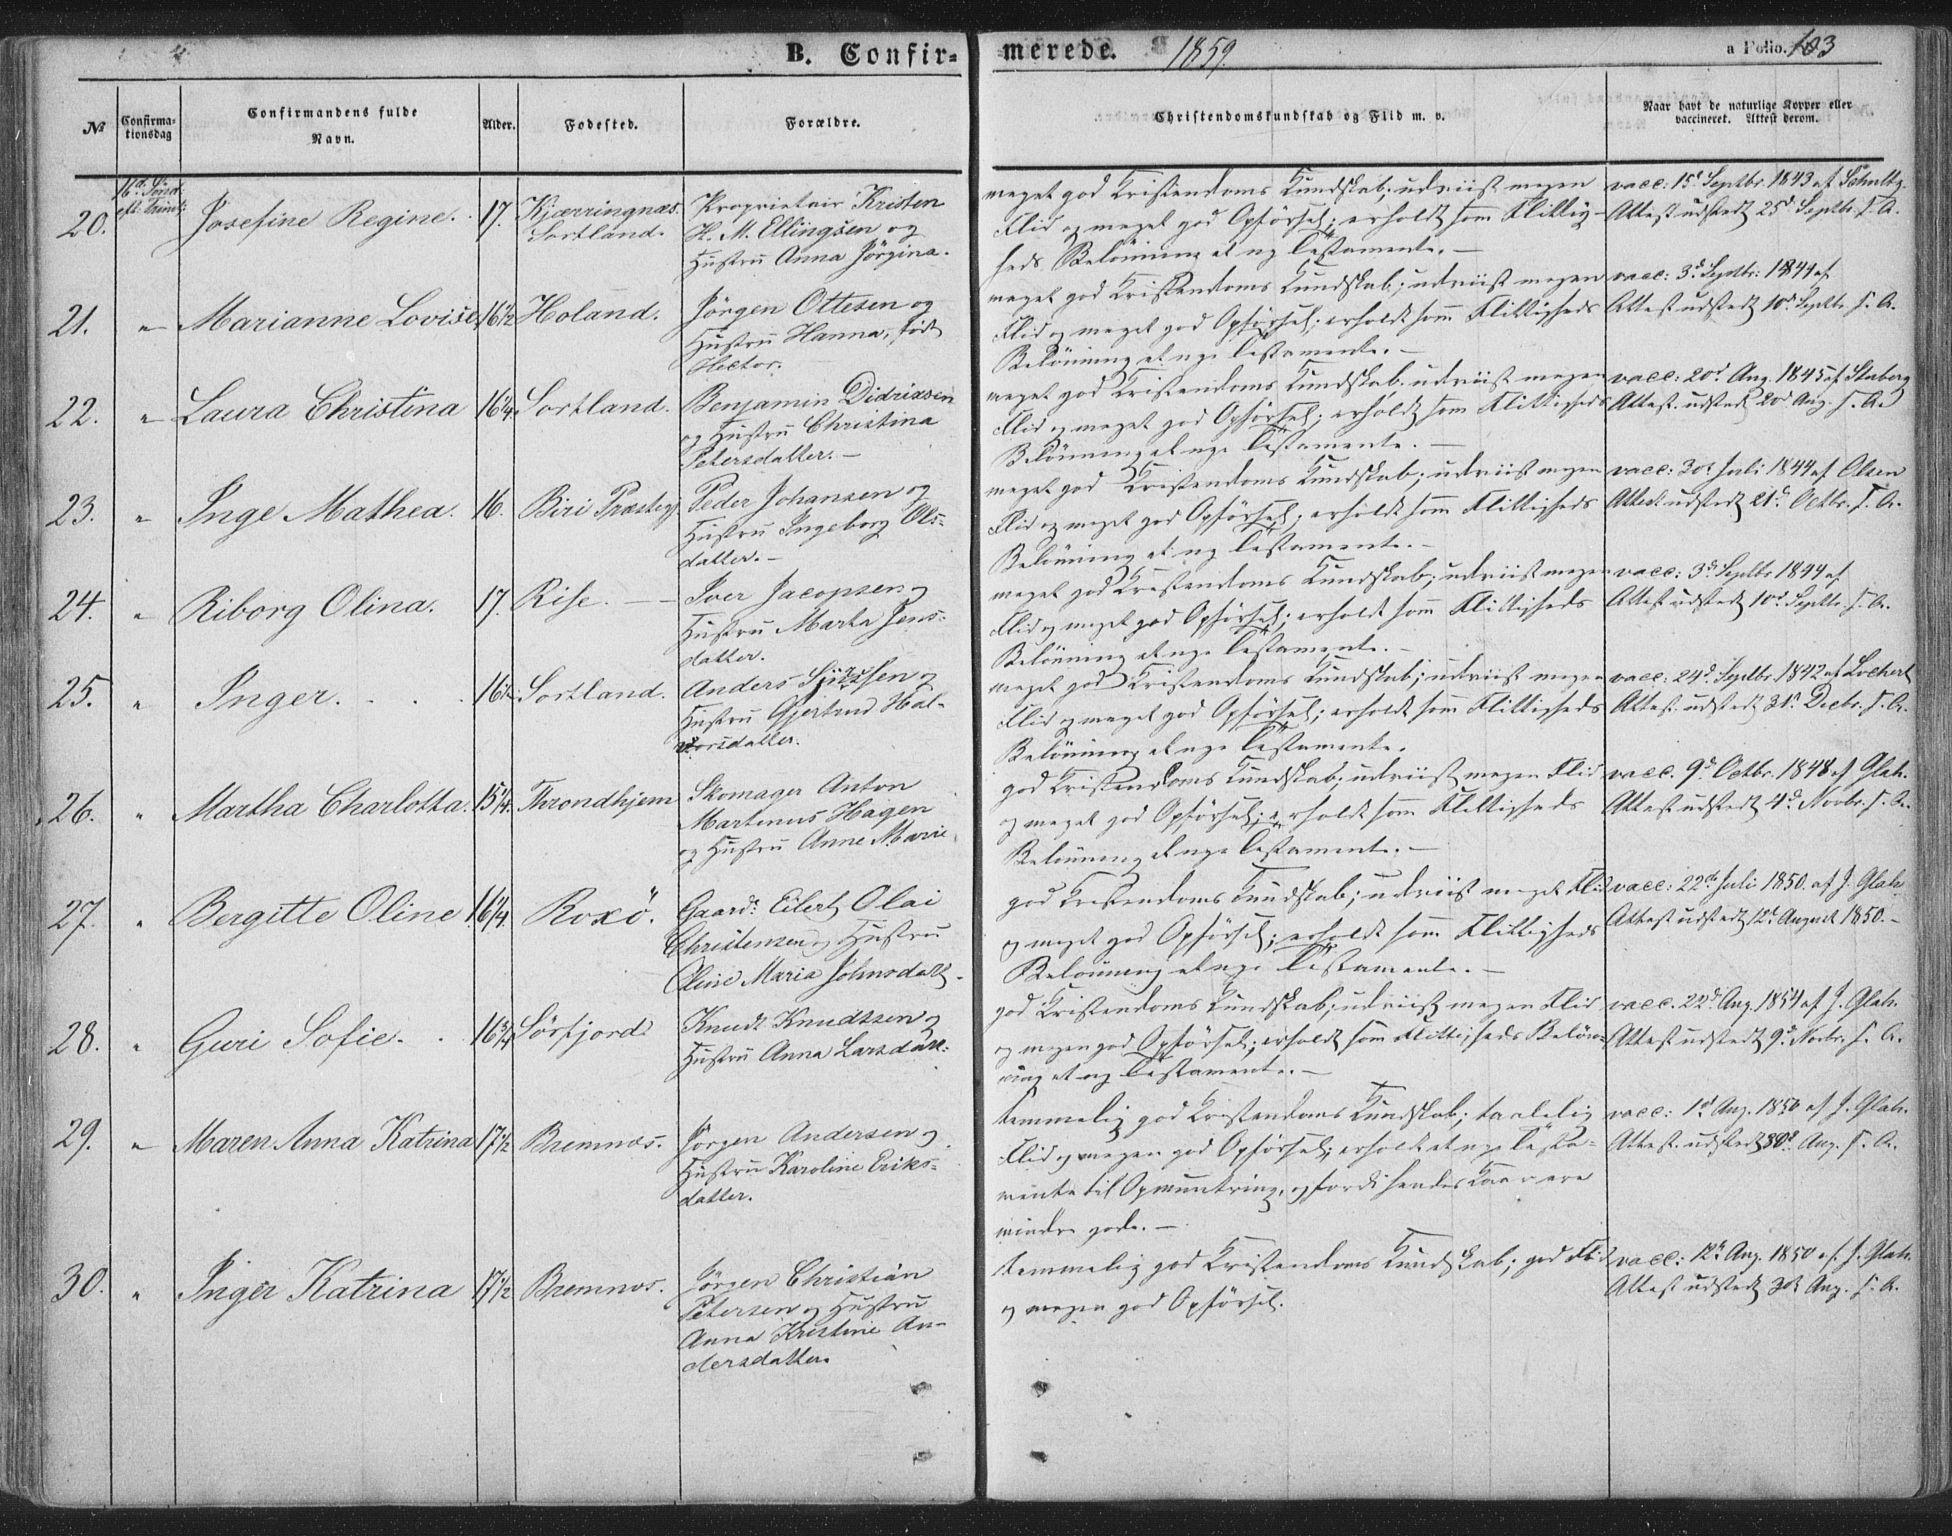 B. Confir=
merede. 1859.
a Folio. 103
№
Confirma-
tionsdag
Confirmandens fulde
Navn.
Alder.
Fødested.
Forældre.
Christendomskundskab og Flid m. v.
Naar havt de naturlige Kopper eller
vaccineret. Attest derom.
16d. Sønd:
eft. Trinit:
20. Josefine Regine. 17. Kjærringnæs.
Sortland.
Proprietair Kristen
H. M. Ellingsen og
Hustru Anna Jörgina.
meget god Kristendoms Kundskab; udviist megen
Flid og meget god Opførsel; erholdt som Flittig-
heds Belönning et ny Testamente. —
vacc: 15d. Septbr. 1843 af Schultz.
Attest udstedt 25d Septbr. s. A.
21. " Marianne Lovise 16½ Holand.
Jörgen Ottesen og
Hustru Hanna, født
Hector.
meget god Kristendoms Kundskab; udviist megen
Flid og meget god Opførsel; erholdt som Flittigheds
Belönning et nye Testamente. —
vacc: 3d. Septbr. 1844 af
Attest udstedt 10d. Septbr. s. A.
22. " Laura Christina 16¼ Sortland.
Benjamin Didriksen
og Hustru Christina
Petersdatter. —
meget god Kristendoms Kundskab. udviist megen
Flid og meget god Opførsel; erholdt som Flittigheds
Belönning et nye Testamente. —
vacc: 20d. Aug. 1845 af Staberg
Attest. udstedt 20d Aug. s. A.
23. " Inge Mathea. 16. Biri Præstegj.
Peder Johansen og
Hustru Ingeborg Ols-
datter. —
meget god Kristendoms Kundskab; udviist megen
Flid og meget god Opførsel; erholdt som Flittigheds
Belönning et ny Testamente. —
vacc: 30d Juli 1844 af Olsen
Attest udstedt 21d. Octbr. s. A.
24. " Riborg Olina. 17. Rise. —
Iver Jacopsen og
Hustru Marta Jens-
datter.
meget god Kristendoms Kundskab; udviist megen
Flid og meget god Opførsel; erholdt som Flittigheds
Belönning et nye Testamente. —
vacc: 3d Septbr 1844 af
Attest udstedt 10d. Septbr. s. A.
25. " Inger. 16½ Sortland.
Anders
Hustru Gjertrud Hal-
vorsdatter.
meget god Kristendoms Kundskab; udviist megen
Flid og meget god Opførsel; erholdt som Flittigheds
Belönning et nye Testamente.
vacc: 24d. Septbr 1842 af Lochert
Attest. udstedt 31d. Decbr. s. A.
26. " Martha Charlotta. 15¼. Throndhjem
Skomager Anton
Martinus Hagen
og Hustru Anne Marie
god Kristendoms Kundskab; udviist megen Flid
og meget god Opførsel; erholdt som Flittigheds
Belönning et nye Testamente. —
vacc. 9d. Octbr. 1848 af Glah.
Attest udstedt 4d. Novbr. s. A.
27. " Bergitte Oline 16¼ Roxö.
Gaardr. Eilert Olai
Christensen og Hustru
Oline Maria Johnsdatt.
god Kristendoms Kundskab; udviist meget Flid
og meget god Opførsel; erholdt som Flittigheds
Belönning et nye Testamente. —
vacc: 22de Juli 1850. af J. Glah.
Attest udstedt 12d. August 1850. —
28. " Guri Sofie. 16¾ Sörfjord
Knudt Knudtsen og
Hustru Anna Larsdatt.
god Kristendoms Kundskab; udviist megen Flid
og megen god Opførsel; erholdt som Flittigheds Belön-
ning et ny Testamente. —
vacc. 22d Aug. 1854 af J. Glah.
Attest udstedt 9d. Novbr. s. A.
29. " Maren Anna Katrina 17½ Bremnes.
Jörgen Andersen og
Hustru Karoline Eriks-
datter.
temmelig god Kristendoms Kundskab; taalelig
Flid og megen god Opførsel; erholdt et nye Testa-
mente til Opmuntring, og fordi hendes Kaar ere
mindre gode. —
vacc: 1d Aug. 1850 af J. Glah.
Attest. udstedt 30d. Aug. s. A.
30. " Inger Katrina 17½ Bremnes.
Jörgen Christian
Petersen og Hustru
Anna Kristine An-
dersdatter.
temmelig god Kristendoms Kundskab; god Flid
og megen god Opførsel.
vacc: 12d. Aug. 1850 af J. Glah.
Attest udstedt 30d Aug. s. A.